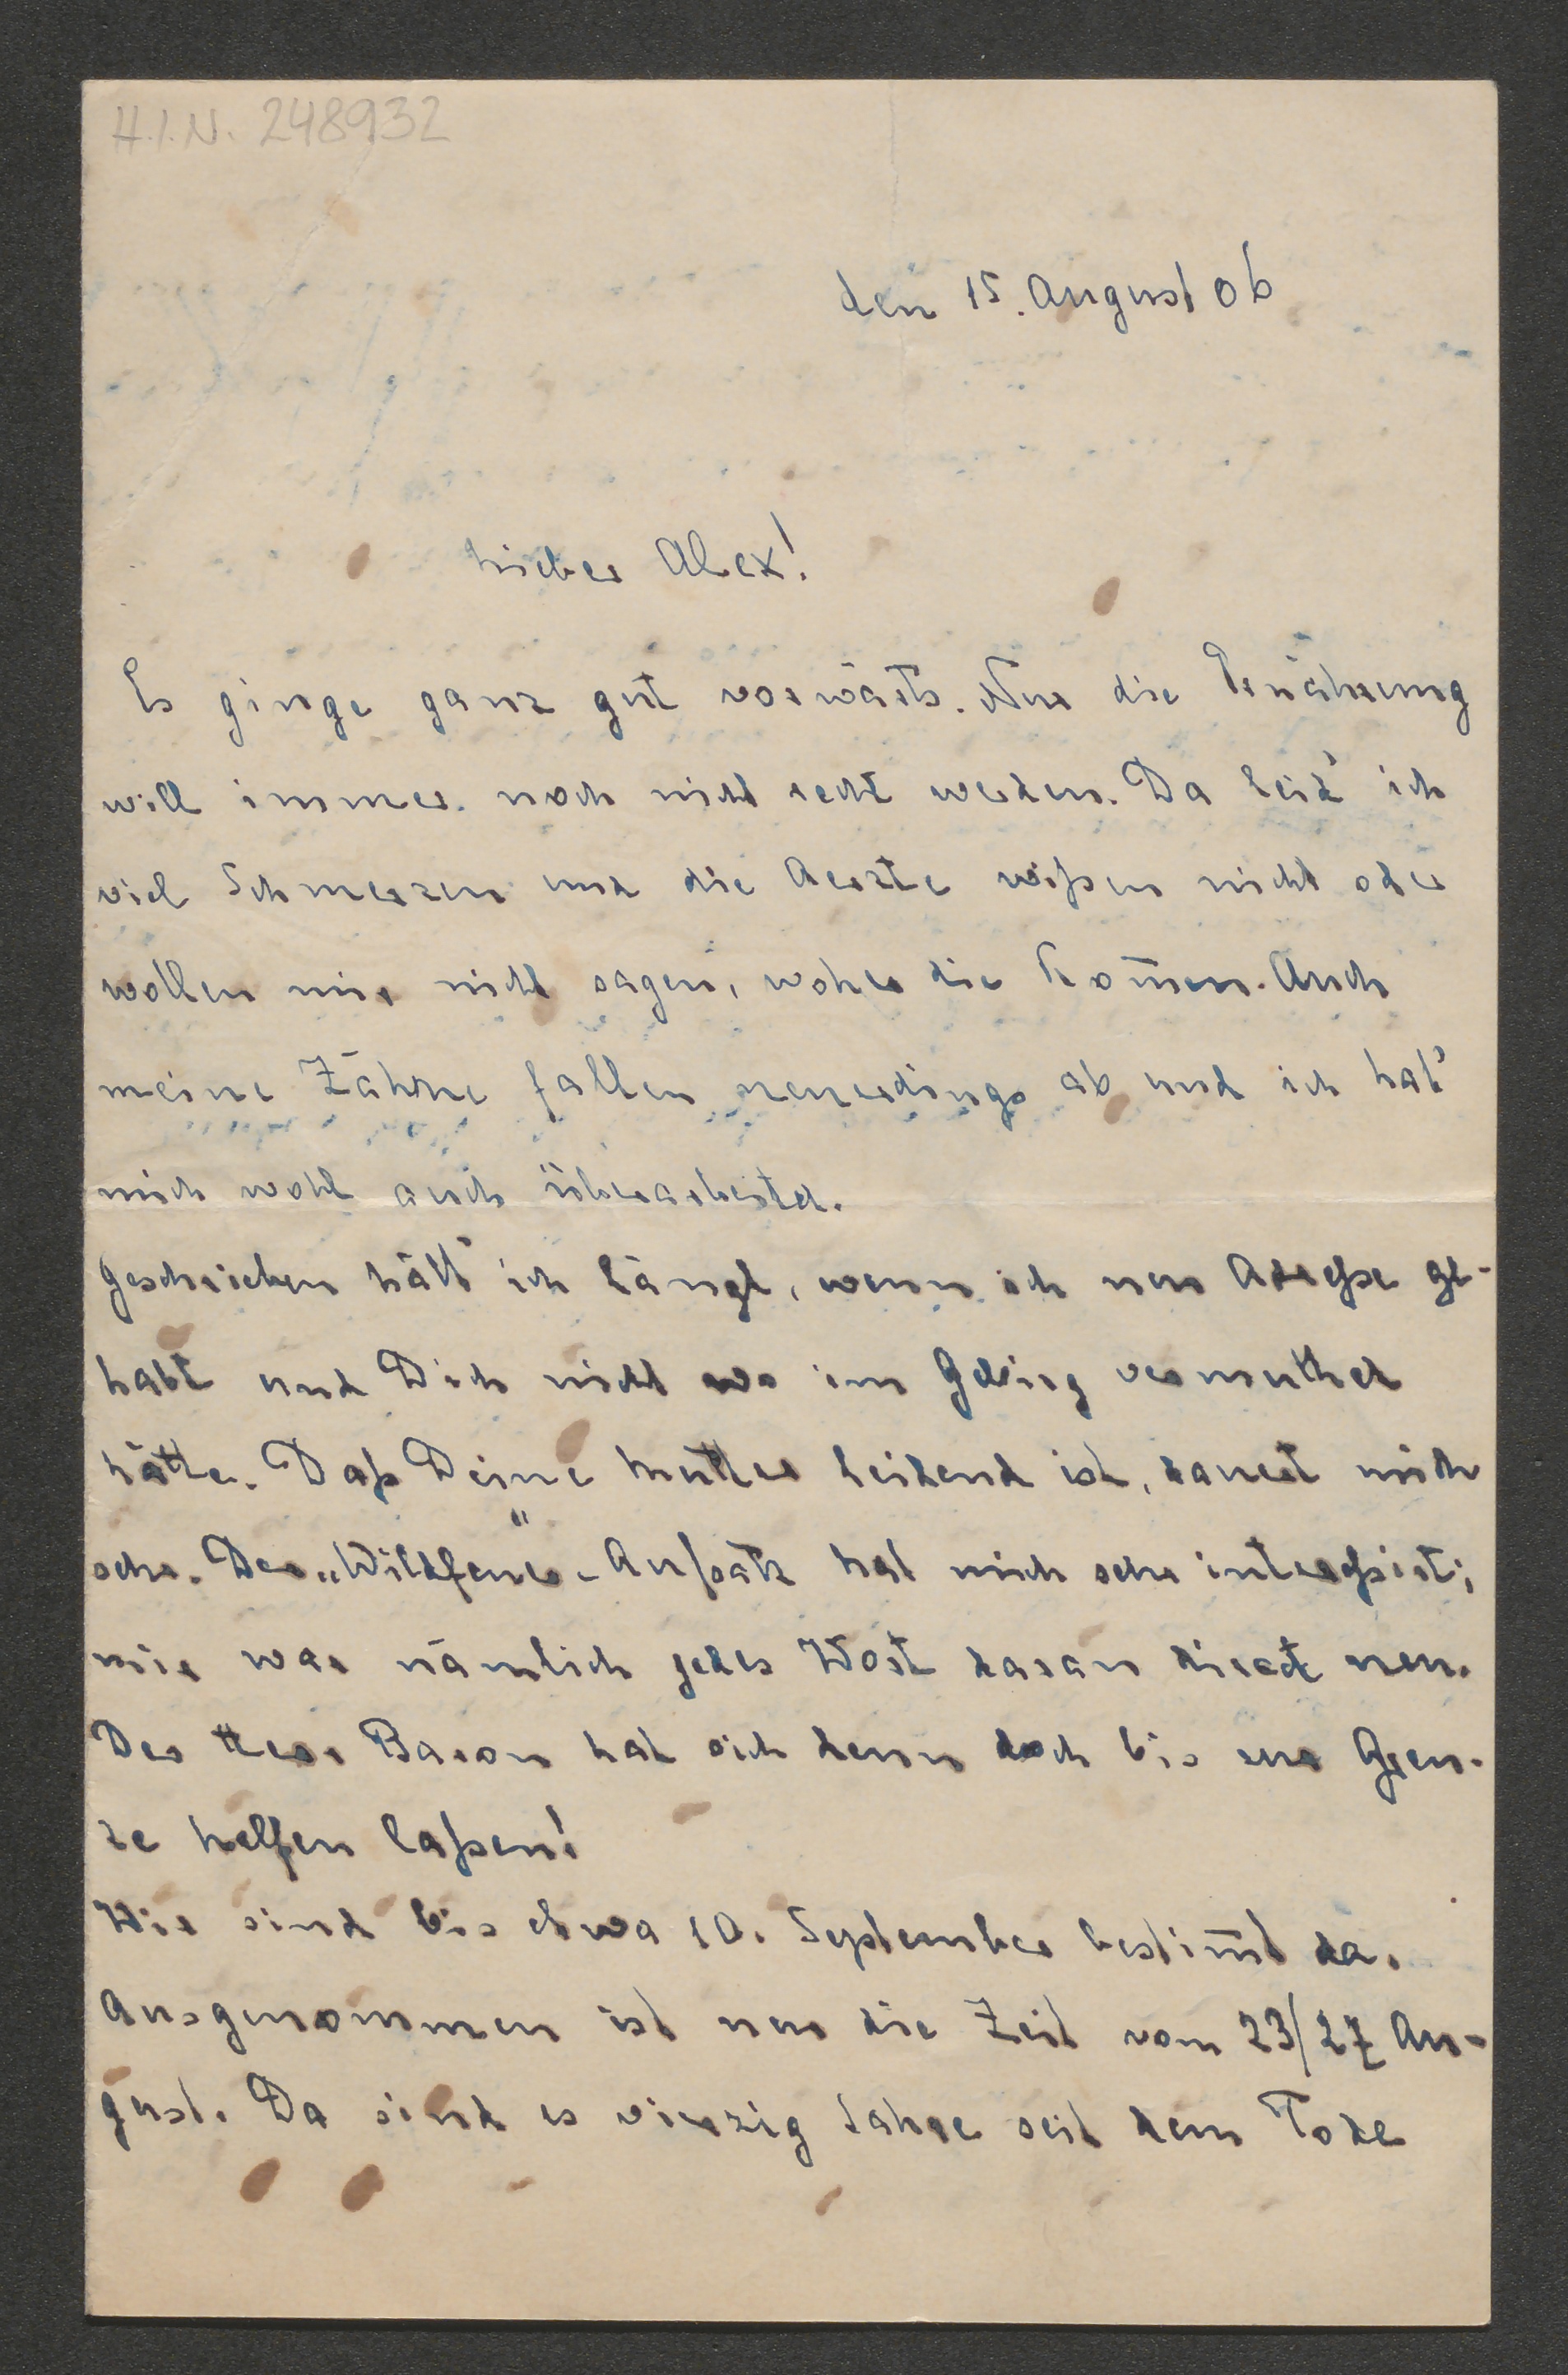 H.I.N. 248932
den 15. August 06
Lieber Alex!
Es ginge ganz gut vorwärts. Nur die Ernährung
will immer noch nicht recht werden. Da leid' ich
viel Schmerzen und die Aerzte wißen nicht oder
wollen mir nicht sagen, woher die kom̄en. Auch
meine Zähne fallen neuerdings ab und ich hab'
mich wohl auch überarbeitet.
Geschrieben hätt' ich längst, wenn ich nur Adreße ge-
habt und Dich nicht wo im Gebirg vermuthet
hätte. Daß Deine Mutter leidend ist, dauert mich
sehr. Der „Wildfeuer"-Aufsatz hat mich sehr intereßirt;
mir war nämlich jedes Wort daran direct neu.
Der Herr Baron hat sich denn doch bis zur Gren-
ze helfen laßen!
Wir sind bis etwa 10. September bestim̄t da.
Ausgenommen ist nur die Zeit vom 23/27 Au-
gust. Da sind es vierzig Jahre seit dem Tode